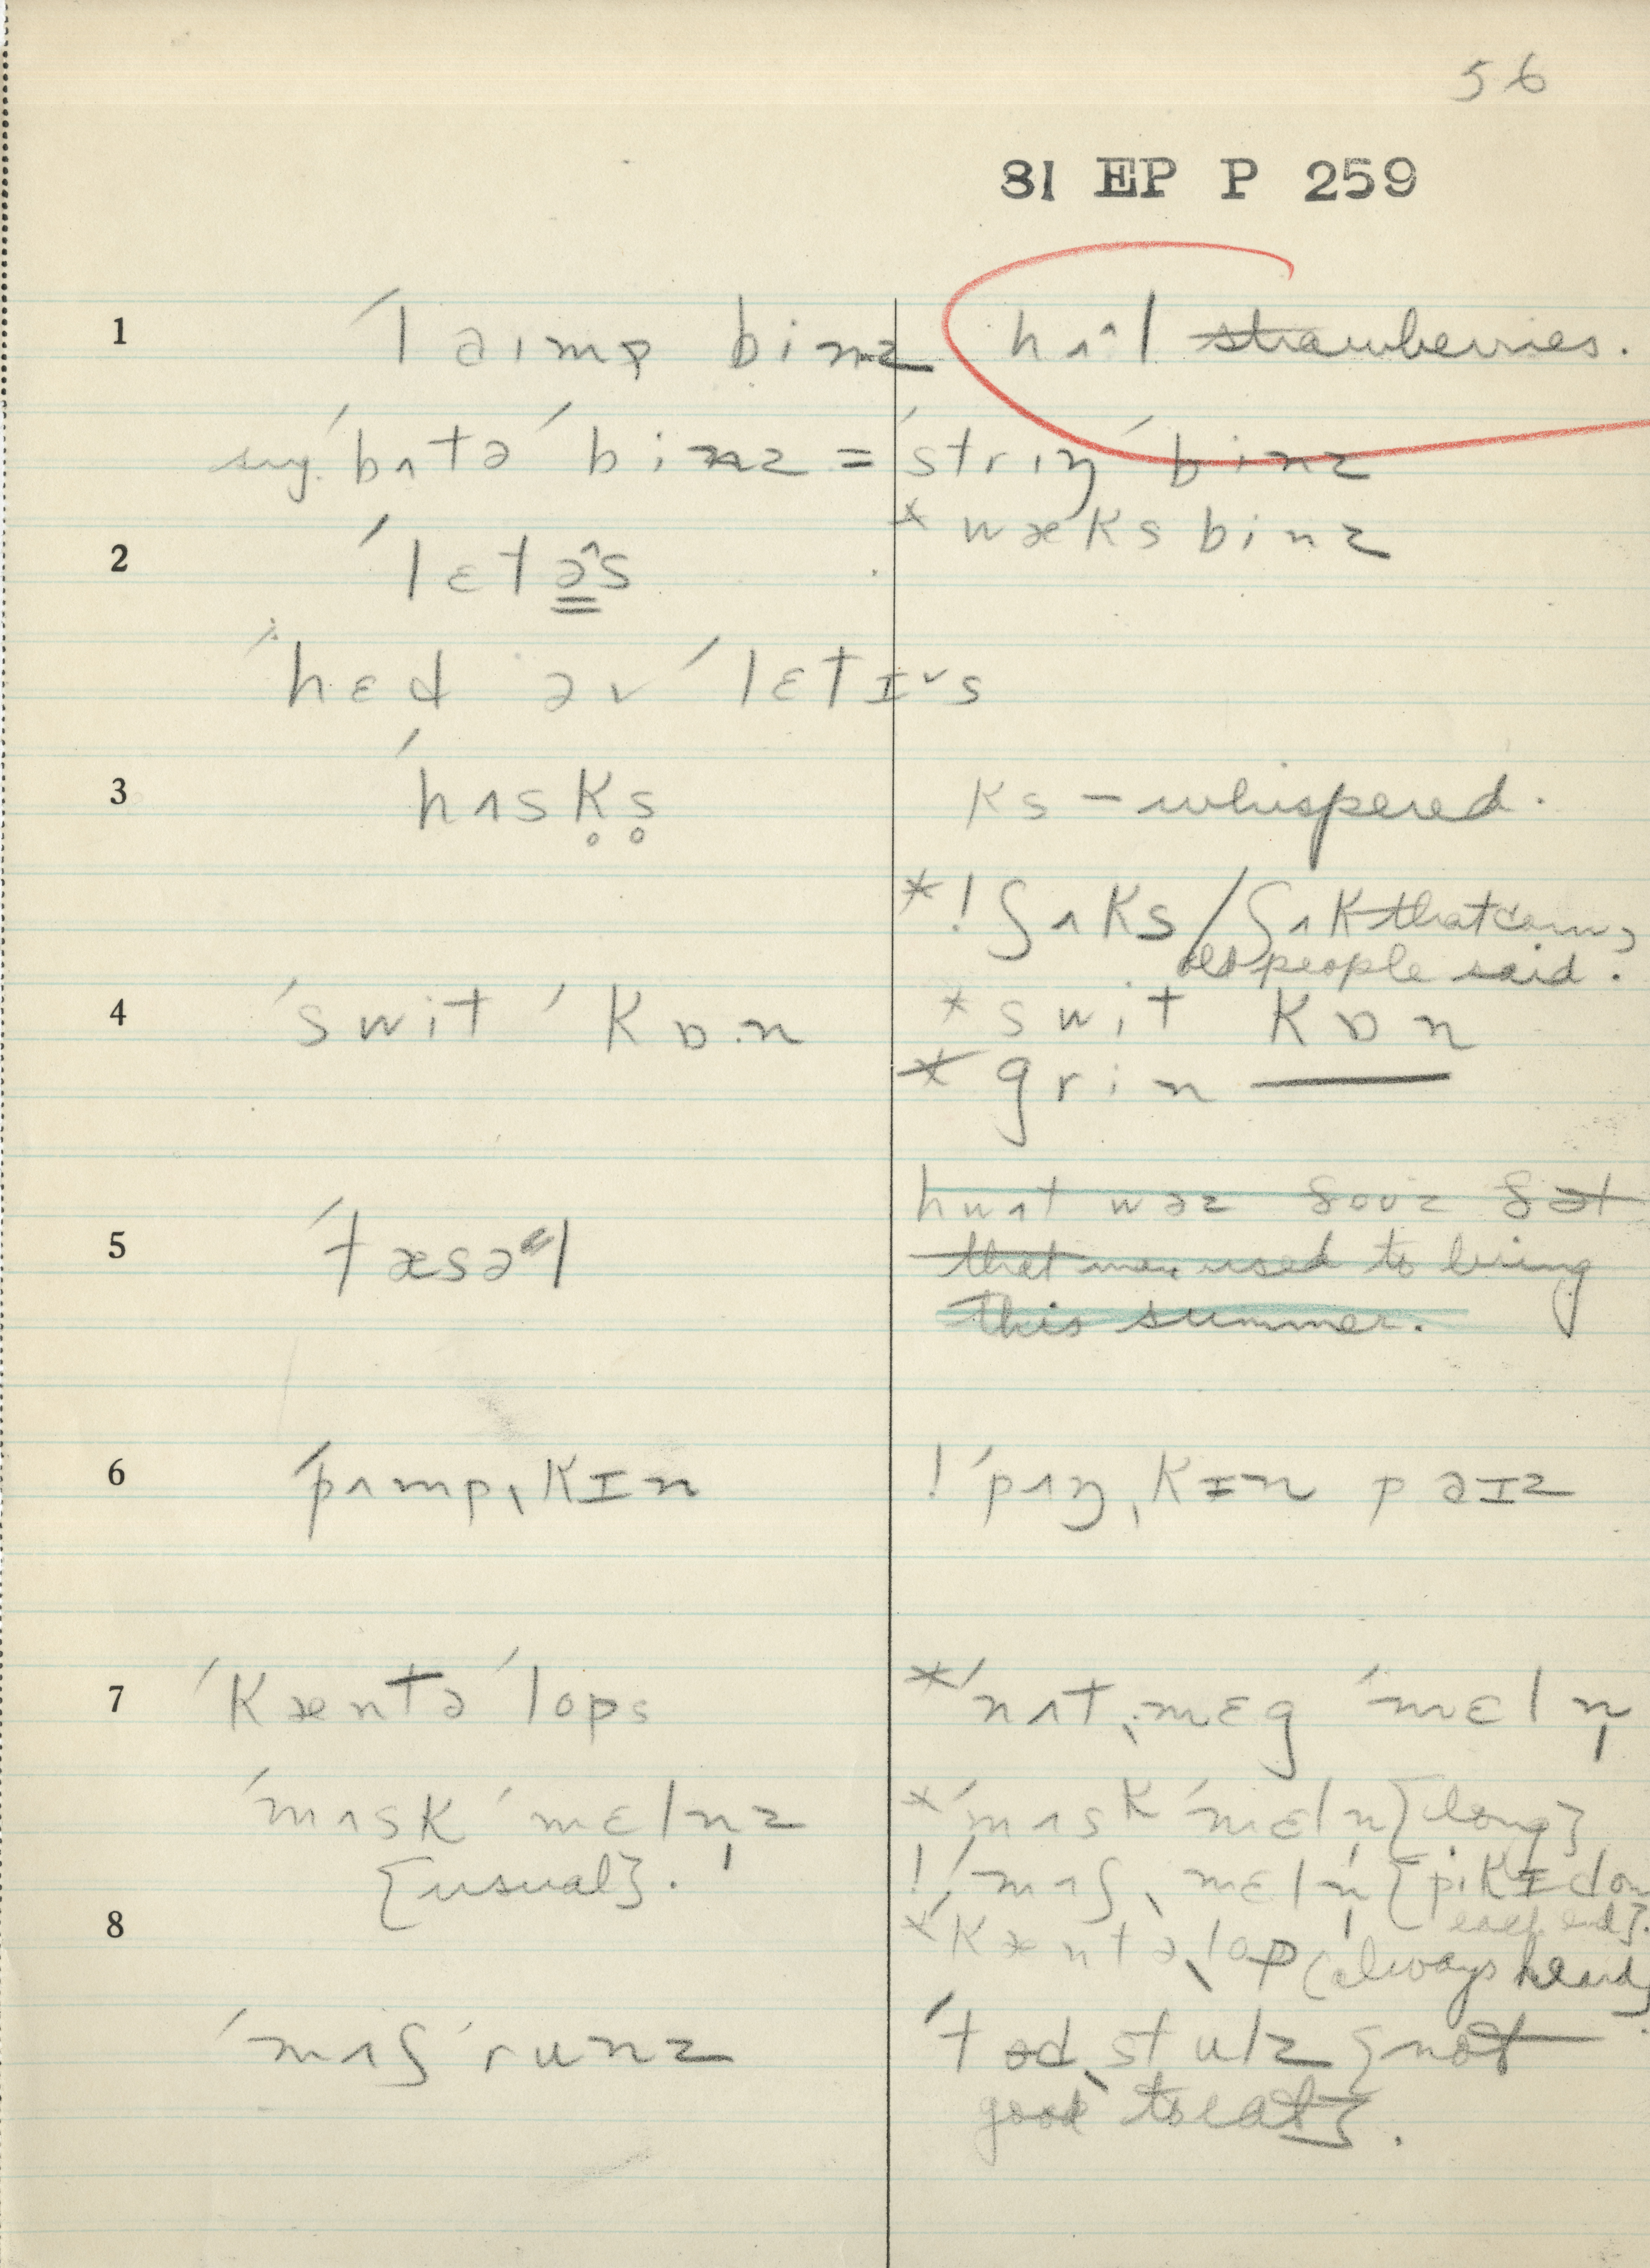 56
81 EP P 259
1 ˈlaɪmə binz hʌ^l strawberries.
sug. ˈbʌtə ˈbinz = ˈstrɪŋ ˈbinz
* wæks binz
2 ˈlɛtə^s
ˈhɛd əv ˈlɛtɪ˅s
3 ˈhʌsk̥s̥ ks – whispered.
*! ʃʌks / ʃʌk that corn,
old people said.
4 ˈswit ˈkɒ.n * swit kɒn
* grin ——
5 ˈtæsəl hwʌt wəz ðoʊz ðət
that men used to bring
this summer.
6 ˈpʌmpˌkɪn ! ˈpʌŋˌkɪn paɪz
7 ˈkæntəˈlops * ˈnʌtˌmɛg ˈmɛln̩
ˈmʌsk ˈmɛln̩z * ˈmʌsk ˈmɛln̩ {long}
{usual}. ! ˈmʌʃˌmɛln̩ {pikɪd on
each end}.
8 * ˈkæntəˌlop (always heard)
ˈmʌʃˈrunz ˈtodˌstulz {not
good to eat}.